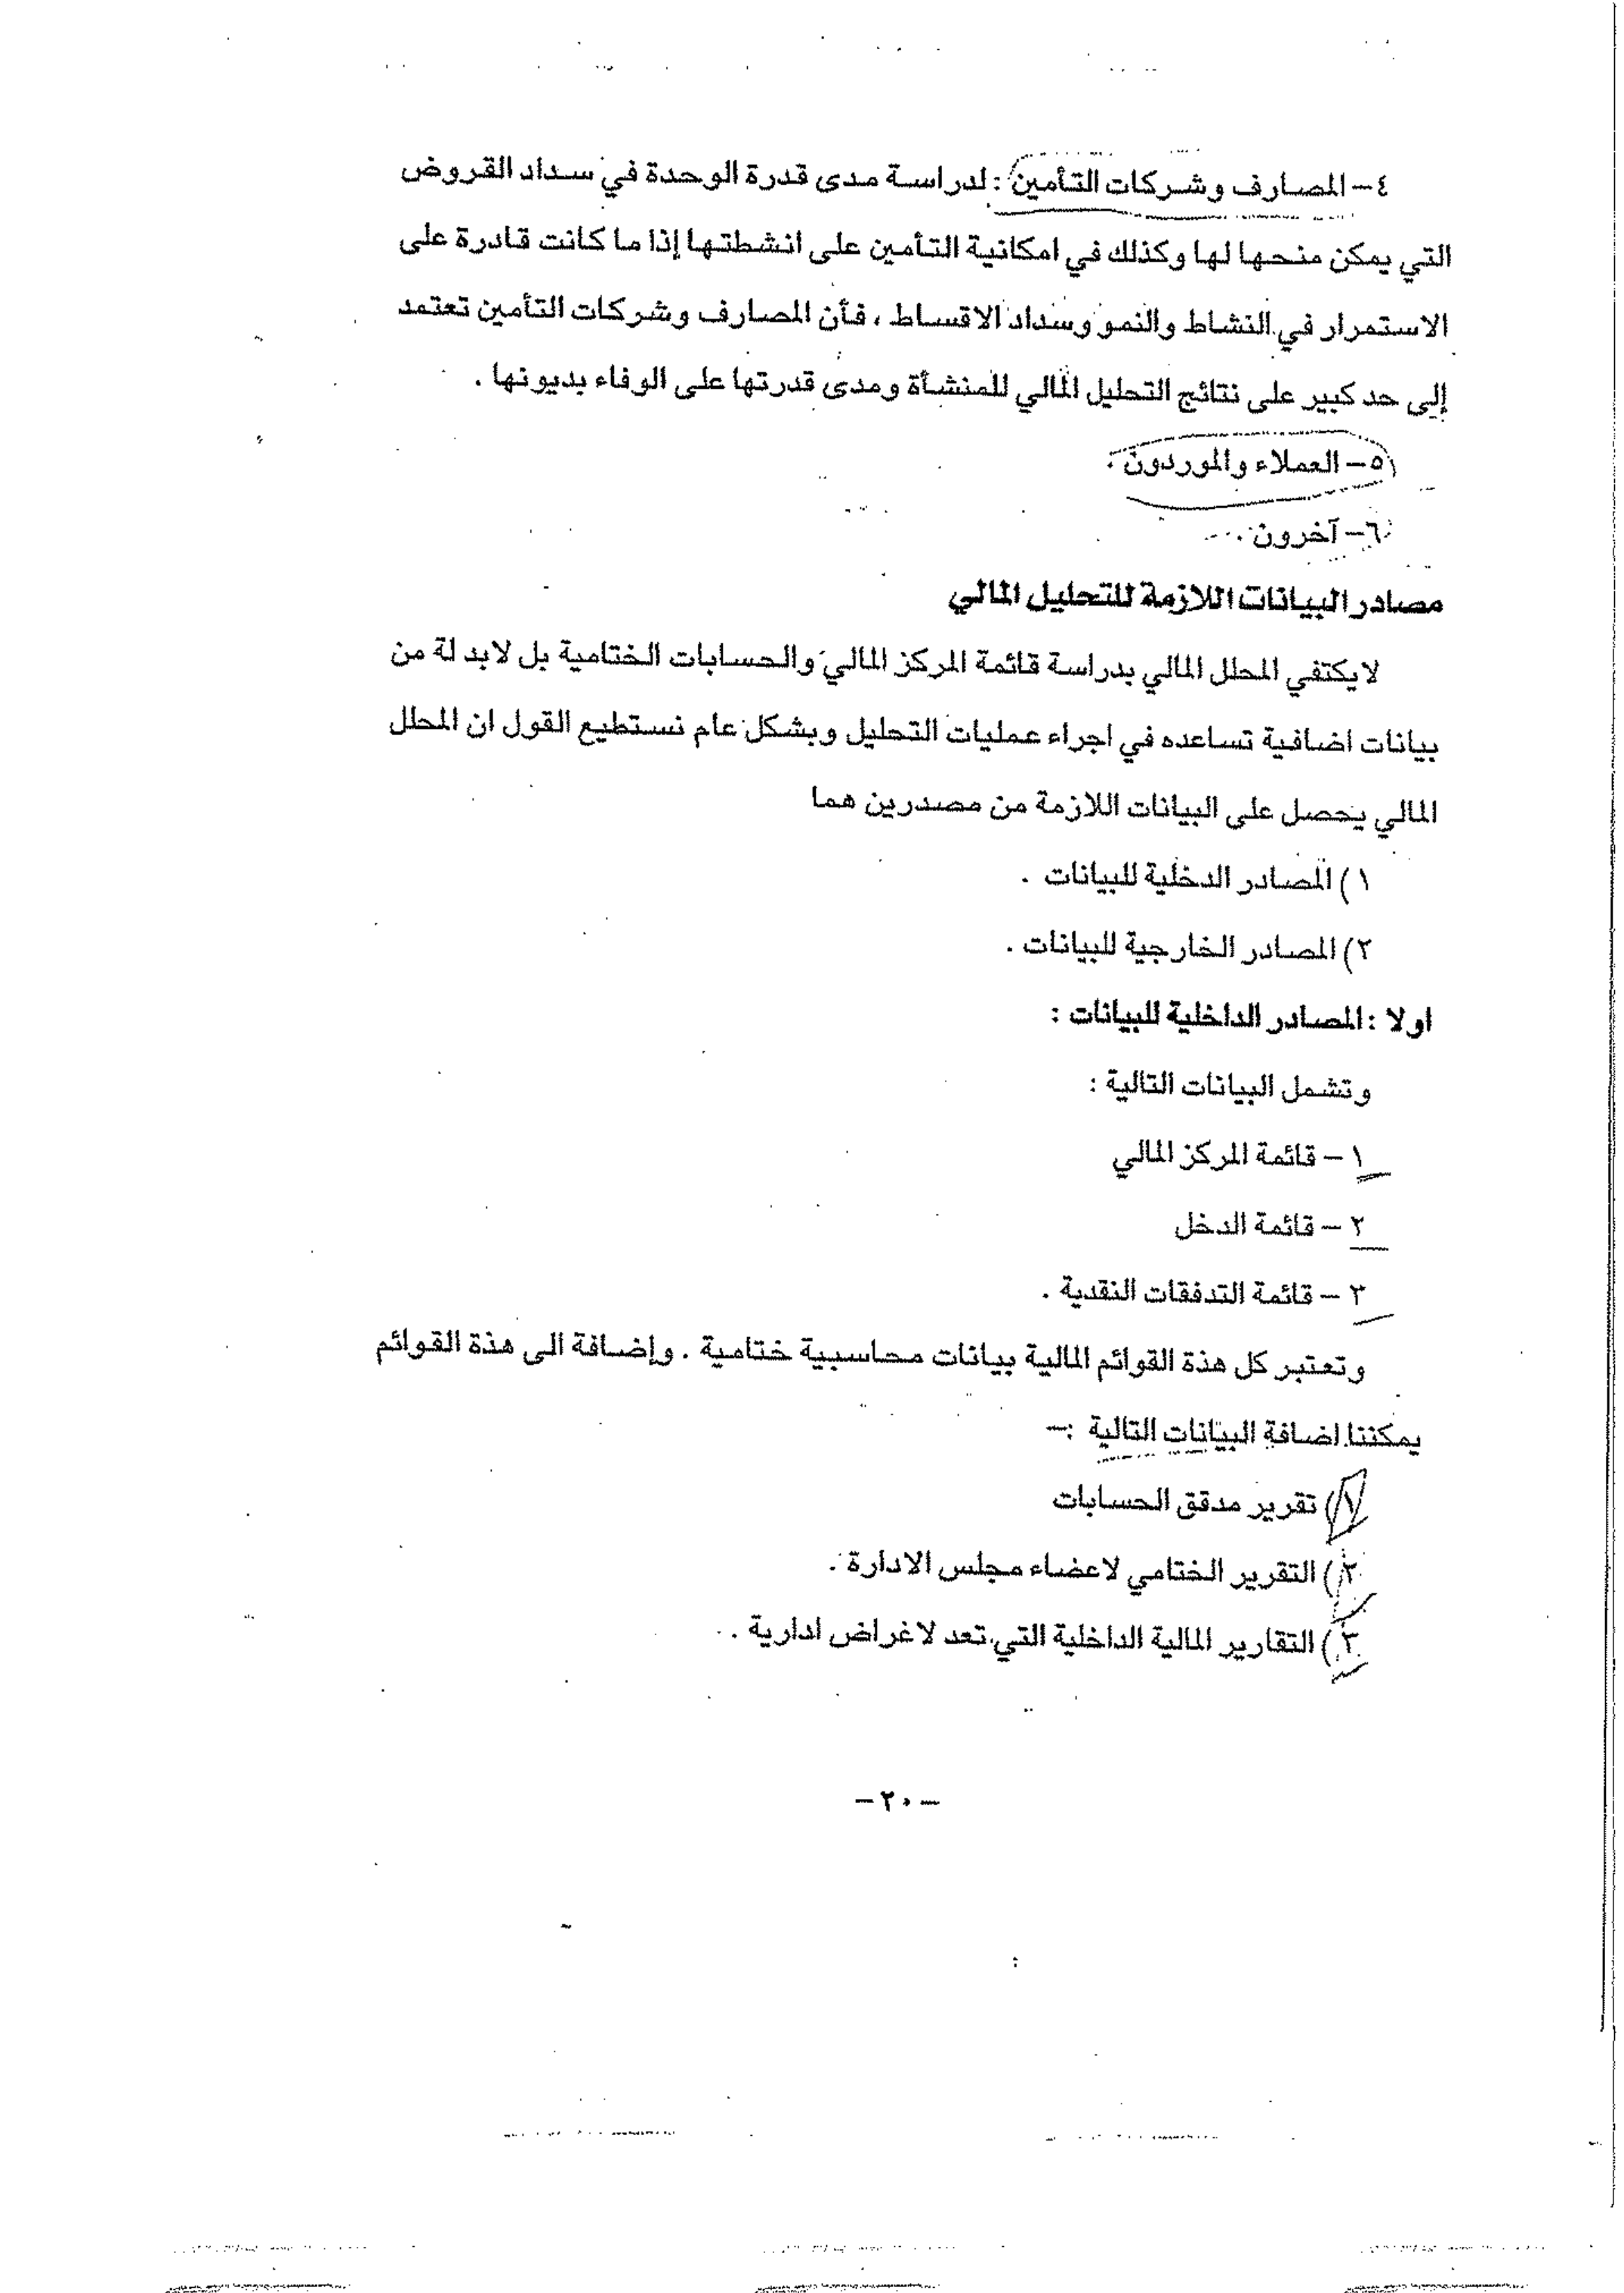 ٤– المصارف وشركات التأمين : لدراسة مدى قدرة الوحدة في سداد القروض
التي يمكن منحها لها وكذلك في امكانية التأمين على انشطتها إذا ما كانت قادرة على
الاستمرار في النشاط والنمو وسداد الاقساط ، فأن المصارف وشركات التأمين تعتمد
إلى حد كبير على نتائج التحليل المالي للمنشأة ومدى قدرتها على الوفاء بديونها .
٥– العملاء والموردون .
٦– آخرون .
مصادر البيانات اللازمة للتحليل المالي
لايكتفي المحلل المالي بدراسة قائمة المركز المالي والحسابات الختامية بل لابد لة من
بيانات اضافية تساعده في اجراء عمليات التحليل وبشكل عام نستطيع القول ان المحلل
المالي يحصل على البيانات اللازمة من مصدرين هما
١) المصادر الدخلية للبيانات .
٢) المصادر الخارجية للبيانات .
اولا : المصادر الداخلية للبيانات :
وتشمل البيانات التالية :
١ – قائمة المركز المالي
٢ – قائمة الدخل
٣ – قائمة التدفقات النقدية .
وتعتبر كل هذة القوائم المالية بيانات محاسبية ختامية . وإضافة الى هذة القوائم
يمكننا اضافة البيانات التالية :–
١) تقرير مدقق الحسابات
٢) التقرير الختامي لاعضاء مجلس الادارة .
٣) التقارير المالية الداخلية التي تعد لاغراض ادارية .
–٢٠–